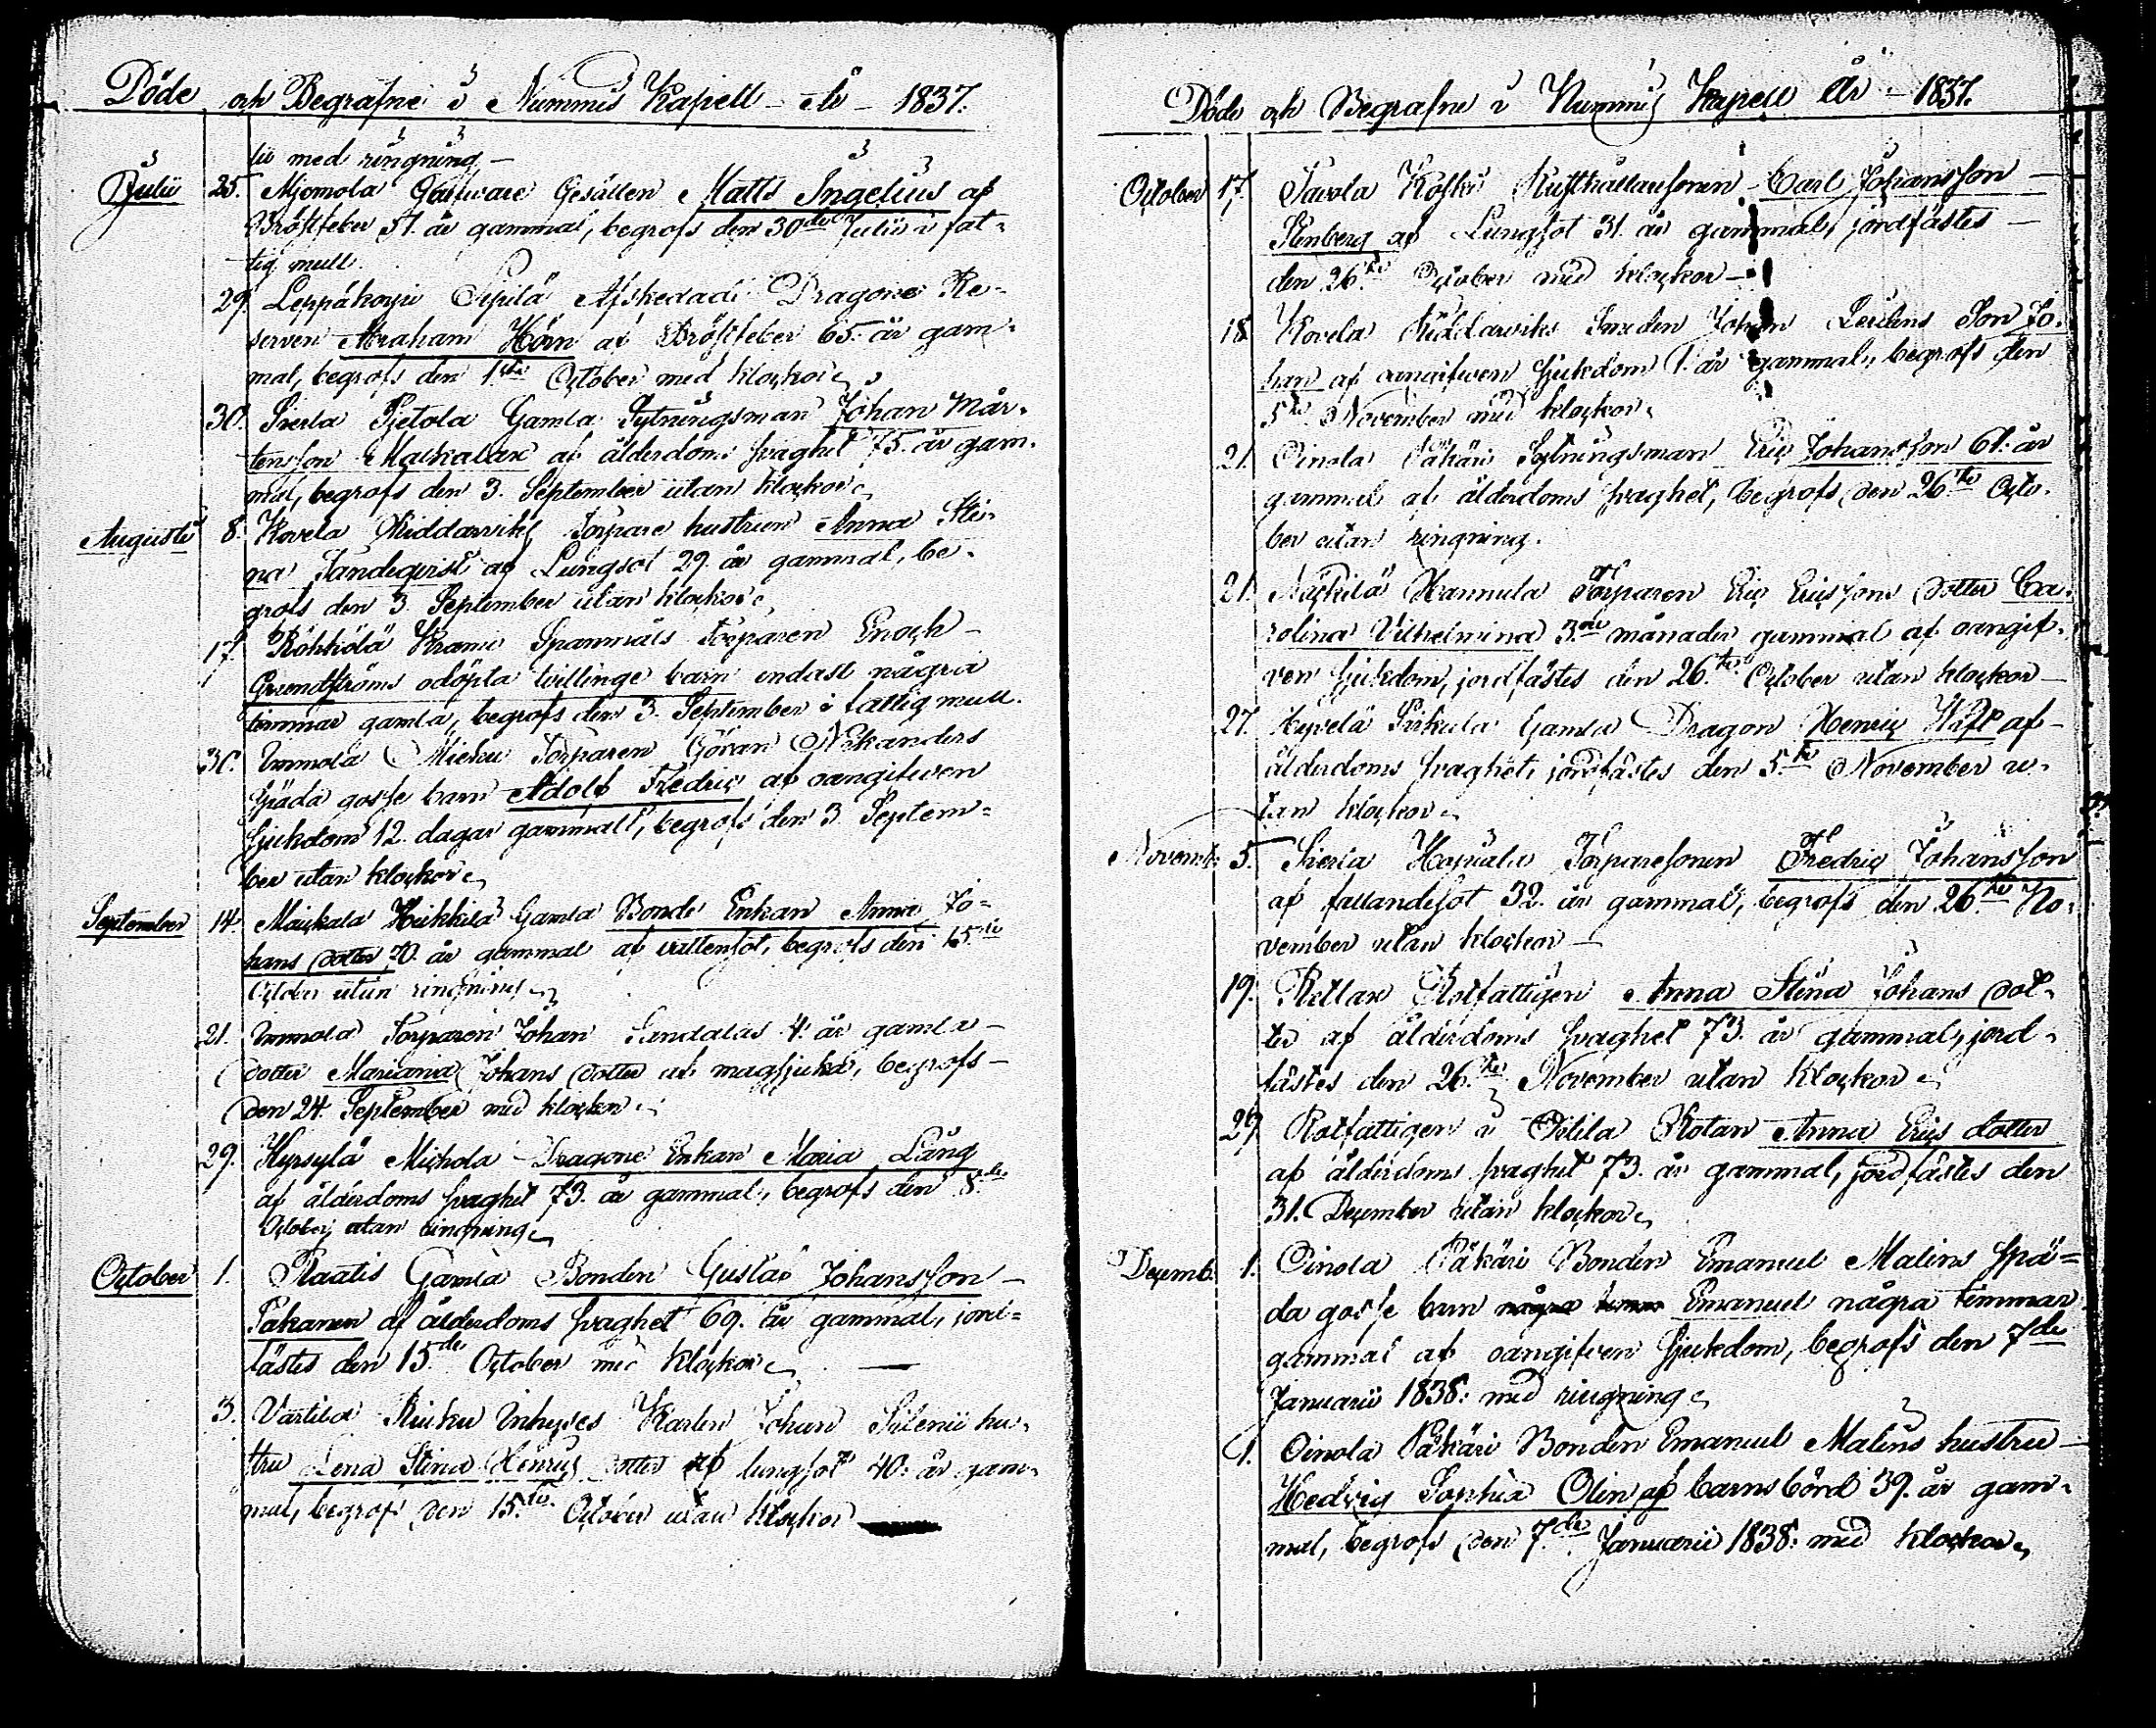 Döde och Begrafne i Nummis Kapell År 1837.
lii med ringning
Julii 25. Mjomola Garfware Gesällen Matts Ingelius af
Bröstfeber 51. år gammal, begrofs den 30de Julii i fat-
tig mull.
29. Leppäkorpi Seppilä Afskedade Dragone Re-
serven Abraham Hörn af Bröstfeber 65. år gam-
mal, begrofs den 1sta October med klockor
30. Sierla Pietola Gamla Sytningsman Johan Mår-
tensson af ålderdoms svaghet 75. år gam-
mal, begrofs den 3. September utan klockor
Augusti 8. Kovela Riddarwiks Torpare hustrun Anna Sti-
na Sandeqvist af Lungsot 29. år gammal, be-
grofs den 3. September utan klockor
17. Röhkölä Kramu Spanmåls Torparen Enoch
odöpta tvillinge barn endast några
timmar gamla, begrofs den 3. September i fattig mull.
30. Immola Mieku Torparen Göran Nikanders
späda gosse barn Adolf Fredric af oangifwen
sjukdom 12. dagar gammalt, begrofs den 3. Septem=
ber utan klockor
September 14. Maickala Heikkilä Gamla Bonde Enkan Anna Jo=
hans dotter 70. år gammal af vattensot, begrofs den 15de
October utan ringning
21. Immola Torparen Johan Sandalas 4. år gamla
dotter Mariana Johans dotter af magsjuka, begrofs
den 24. September med klockor
29. Hyrsylä Michola Dragone Enkan Maria Lång
af ålderdoms svaghet 73. år gammal, begrofs den 8de
October utan ringning
October 1. Raatis Gamla Bonden Gustaf Johansson
Pakanen af ålderdoms svaghet 69. år gammal, jord=
fästes den 15de October med klockor
3. Vartila Inhyses Karlen Johan Silenii hu-
stru Lena Stina Henrics dotter af lungsot 40. år gam-
mal, begrofs den 15de October utan klockor
Döde och Begrafne i Nummis Kapell År 1837.
October 17. Tavola Koski Rusthållaresonen Carl Johansson
Stenberg af Lungsot 31. år gammal, jordfästes
den 26te October med klockor
18. Kovela Riddarwiks Smeden Johan Son Jo-
han af oangifwen sjukdom 1. år gammal, begrofs den
5te November med klockor
21. Oinola Päkäri Sytningsman Eric Johansson 61. år
gammal af ålderdoms svaghet, begrofs den 26te Octo-
ber utan ringning.
21. Näckilä Hannula Torparen Eric Ericssons dotter Ca-
rolina Vilhelmina 3ne månader gammal af oangif-
ven sjukdom, jordfästes den 26te October utan klockor
27. Hyvelä Pirkula Gamla Dragon Henric af
ålderdoms svaghet, jordfästes den 5te November u-
tan klockor
Novemb. 5. Sierla Hopiala Torparesonen Fredric Johansson
af fallandesot 32. år gammal, begrofs den 26te No-
vember utan klockor
19. Rettare Rotfattigen Anna Stina Johans dot-
ter af ålderdoms svaghet 73. år gammal, jord-
fästes den 26te November utan klockor
29. Rotfattigen i Pitila Rotan Anna Erics dotter
af ålderdoms svaghet 73. år gammal, jordfästes den
31. December utan klockor
Decemb. 1. Oinola Päkäri Bonden Emanuel Malins spä=
da gosse barn några timmar Emanuel några timmar
gammal af oangifven sjukdom, begrofs den 7de
Januarii 1838: med ringning
1. Oinola Päkäri Bonden Emanuel Malins hustru
Hedvig Sophia Olin af barnsbörd 39. år gam-
mal, begrofs den 7de Januarii 1838: med klockor